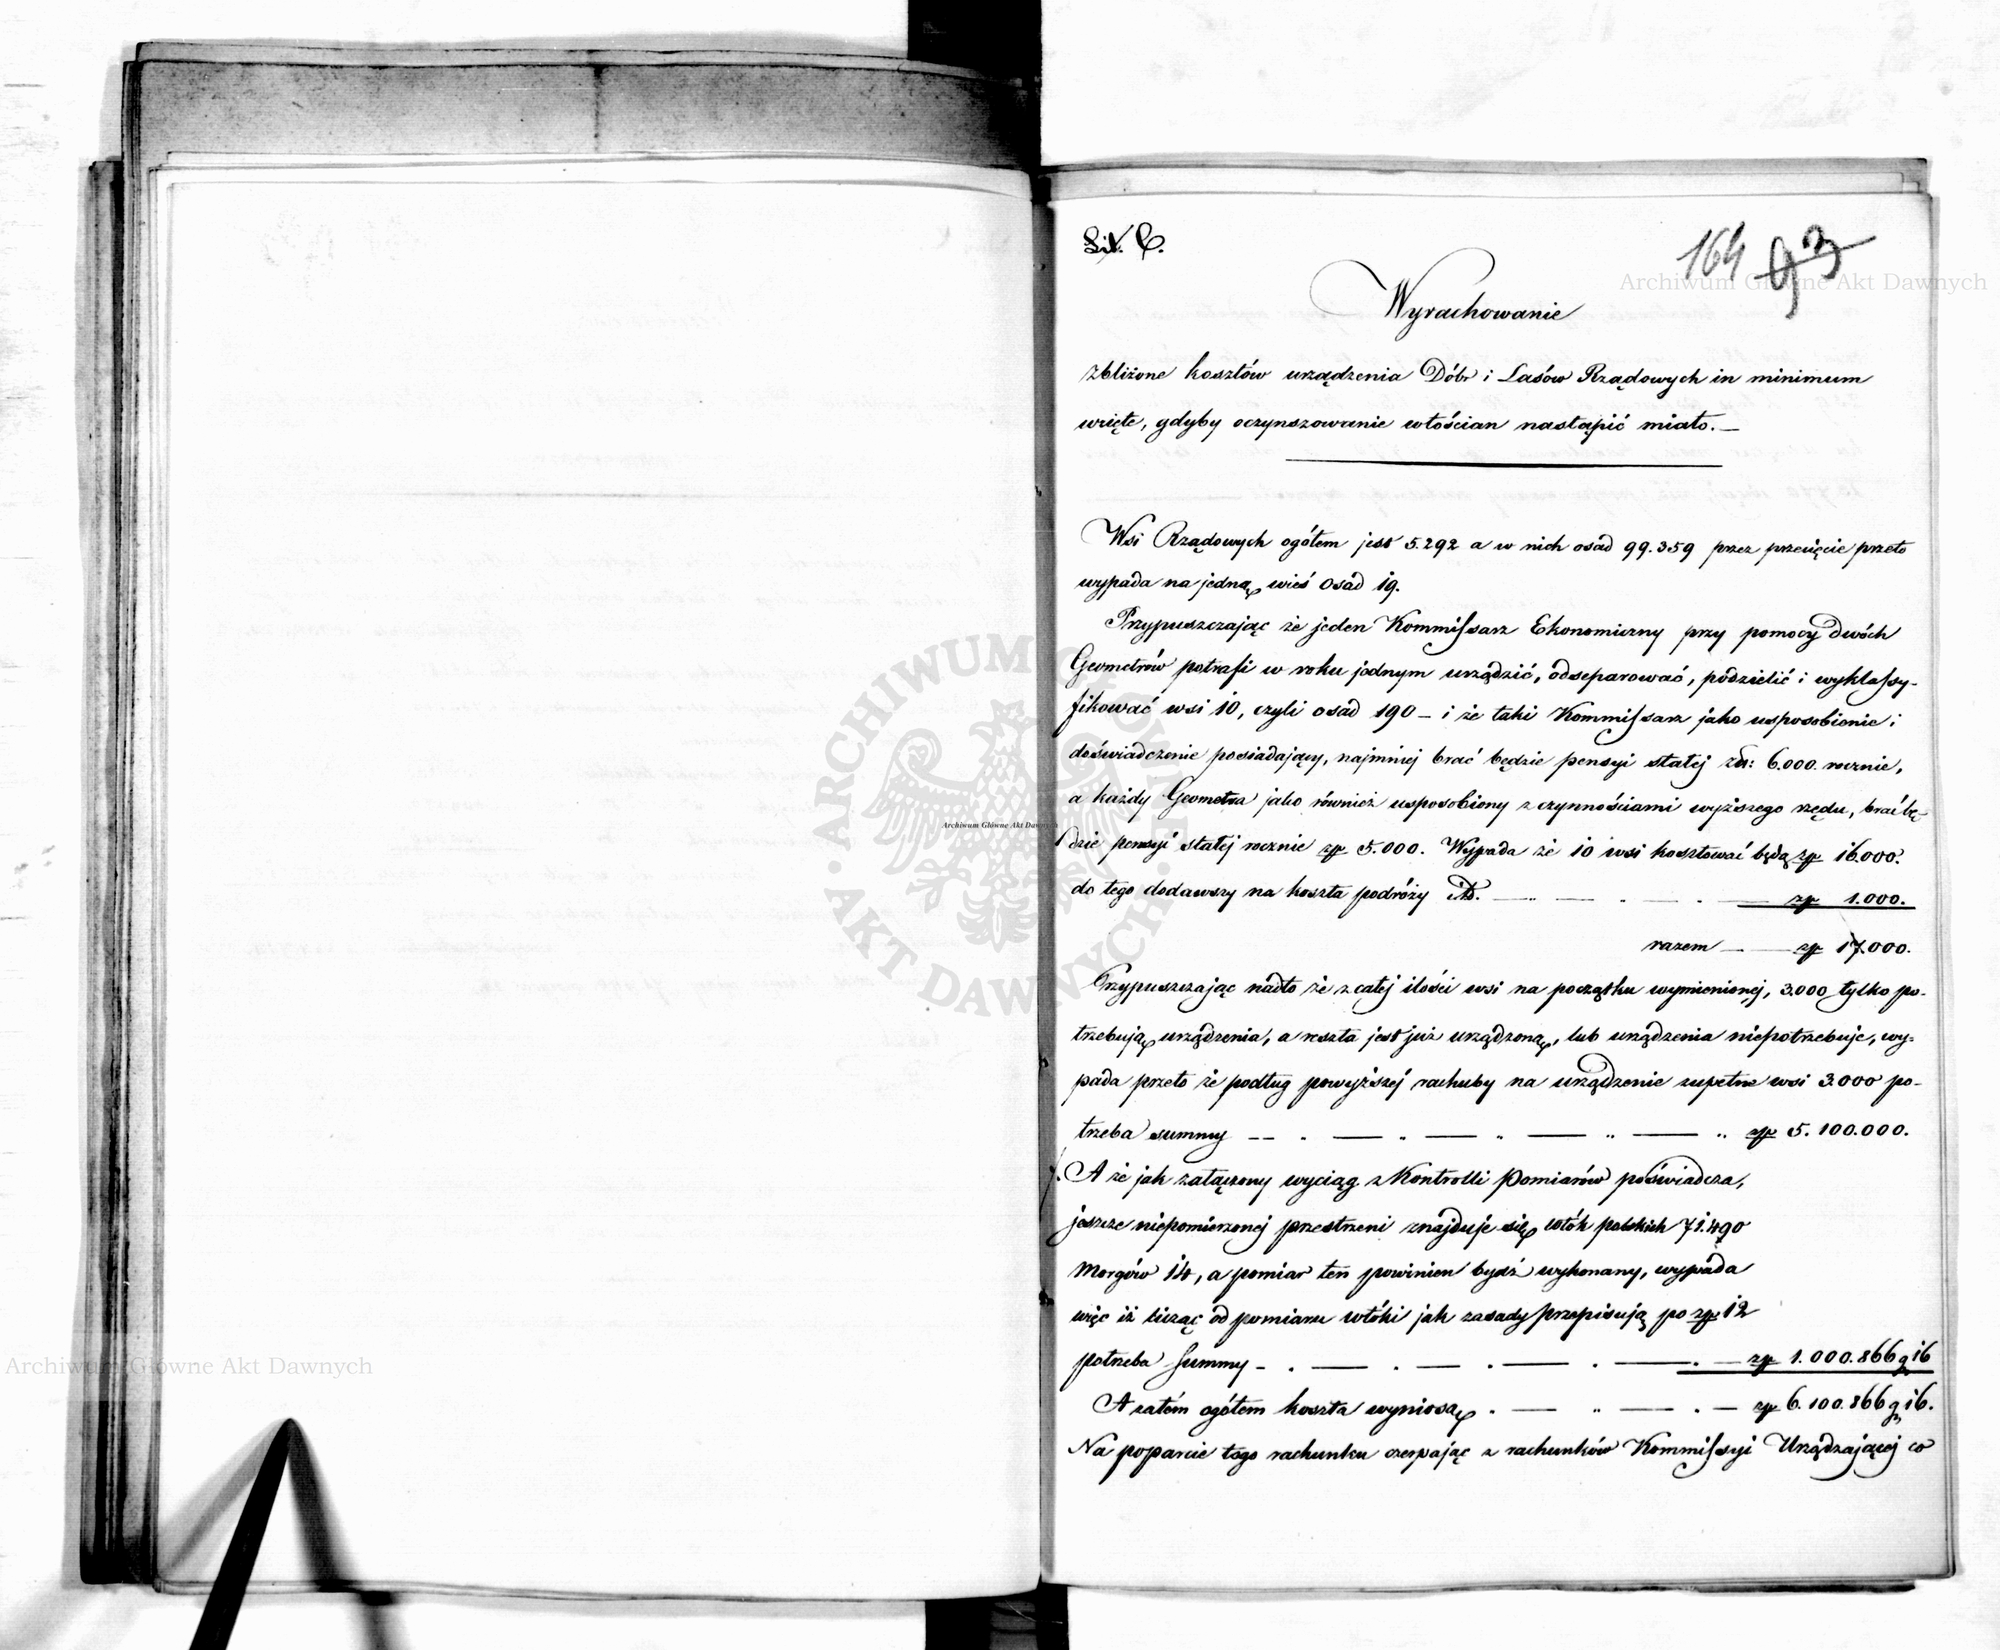 Lit. C.
164 93
Wyrachowanie
zbliżone kosztów urządzenia Dóbr i Lasów Rządowych in minimum
wzięte, gdyby oczynszowanie włościan nastąpić miało. —
Wsi Rządowych ogółem jest 5.292 a w nich osad 99.359 przez przecięcie przeto
wypada na jedną wieś osad 19.
Przypuszczając że jeden Kommissarz Ekonomiczny przy pomocy dwóch
Geometrów potrafi w roku jednym urządzić, odseparować, podzielić i wyklassy-
fikować wsi 10, czyli osad 190 — i że taki Kommissarz jako usposobienie i
doświadczenie posiadający, najmniej brać będzie pensyi stałej złn: 6.000. rocznie,
a każdy Geometra jako również usposobiony z czynnościami wyższego rzędu, brać bę-
dzie pensyi stałej rocznie zp 5.000. Wypada że 10 wsi kosztować będą zp 16.000.
do tego dodawszy na koszta podróży itd. — — — zp 1.000.
razem — — zp 17.000.
Przypuszczając nadto że z całej ilości wsi na początku wymienionej, 3.000 tylko po-
trzebują urządzenia, a reszta jest już urządzoną, lub urządzenia niepotrzebuje, wy-
pada przeto że podług powyższej rachuby na urządzenie zupełne wsi 3.000 po-
trzeba summy — — — — — zp 5.100.000.
A że jak załączony wyciąg z Kontrolli Pomiarów poświadcza,
jeszcze niepomierzonej przestrzeni znajduje się włók polskich 71.490
Morgów 14, a pomiar ten powinien bydź wykonany, wypada
więc iż licząc od pomiaru włóki jak zasady przepisują po zp 12
potrzeba summy — — — — — zp 1.000.866 g 16
A zatém ogółem koszta wyniosą — — — zp 6.100.866 g 16.
Na poparcie tego rachunku czerpając z rachunków Kommissyi Urządzającej co
Archiwum Główne Akt Dawnych
Archiwum Główne Akt Dawnych
Archiwum Główne Akt Dawnych